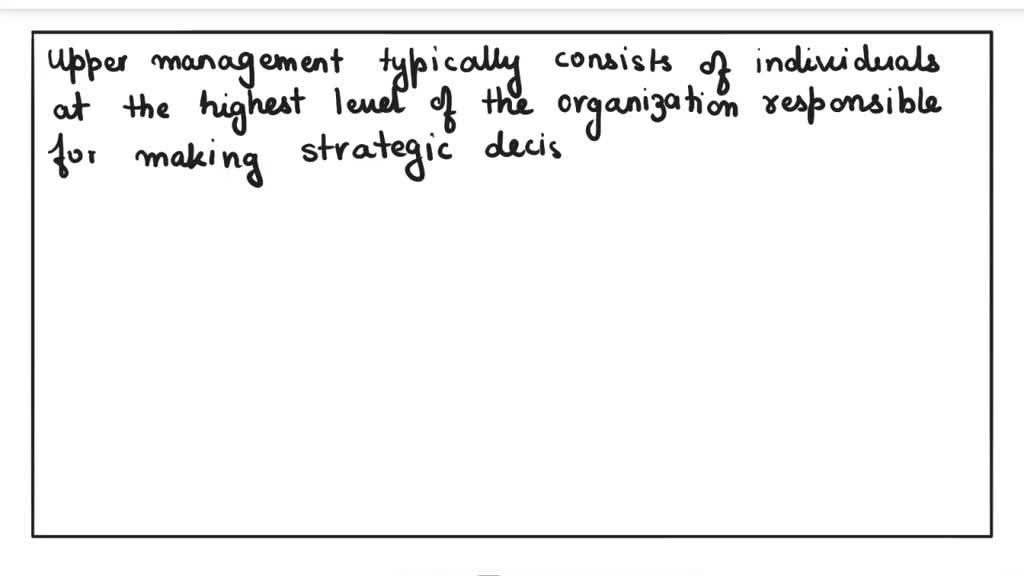 Upper management typically consists of individuals
at the highest level of the organization responsible
for making strategic decis